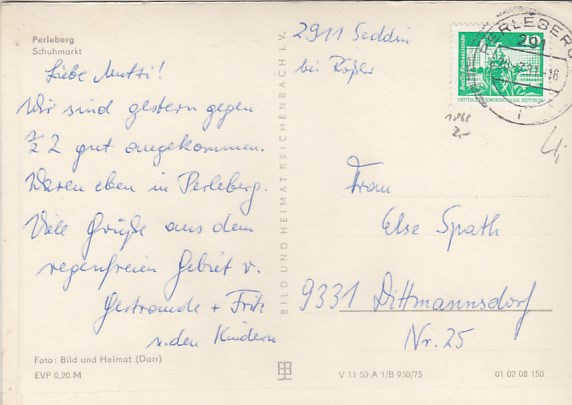 Perleberg
Schuhmarkt
Liebe Mutti!
Wir sind gestern gegen
½ 2 gut angekommen.
Waren eben in Perleberg.
Viele Grüße aus dem
regenfreien Gebiet v.
Gertraude + Fritz
u. den Kindern
Foto: Bild und Heimat (Darr)
EVP 0,20 M
BILD UND HEIMAT REICHENBACH I. V.
2911 Seddin
bei Rößler
PERLEBERG
20
Frau
Else Spath
9331 Dittmannsdorf
Nr. 25
V 11 50 A 1/B 930/75
01 02 08 150